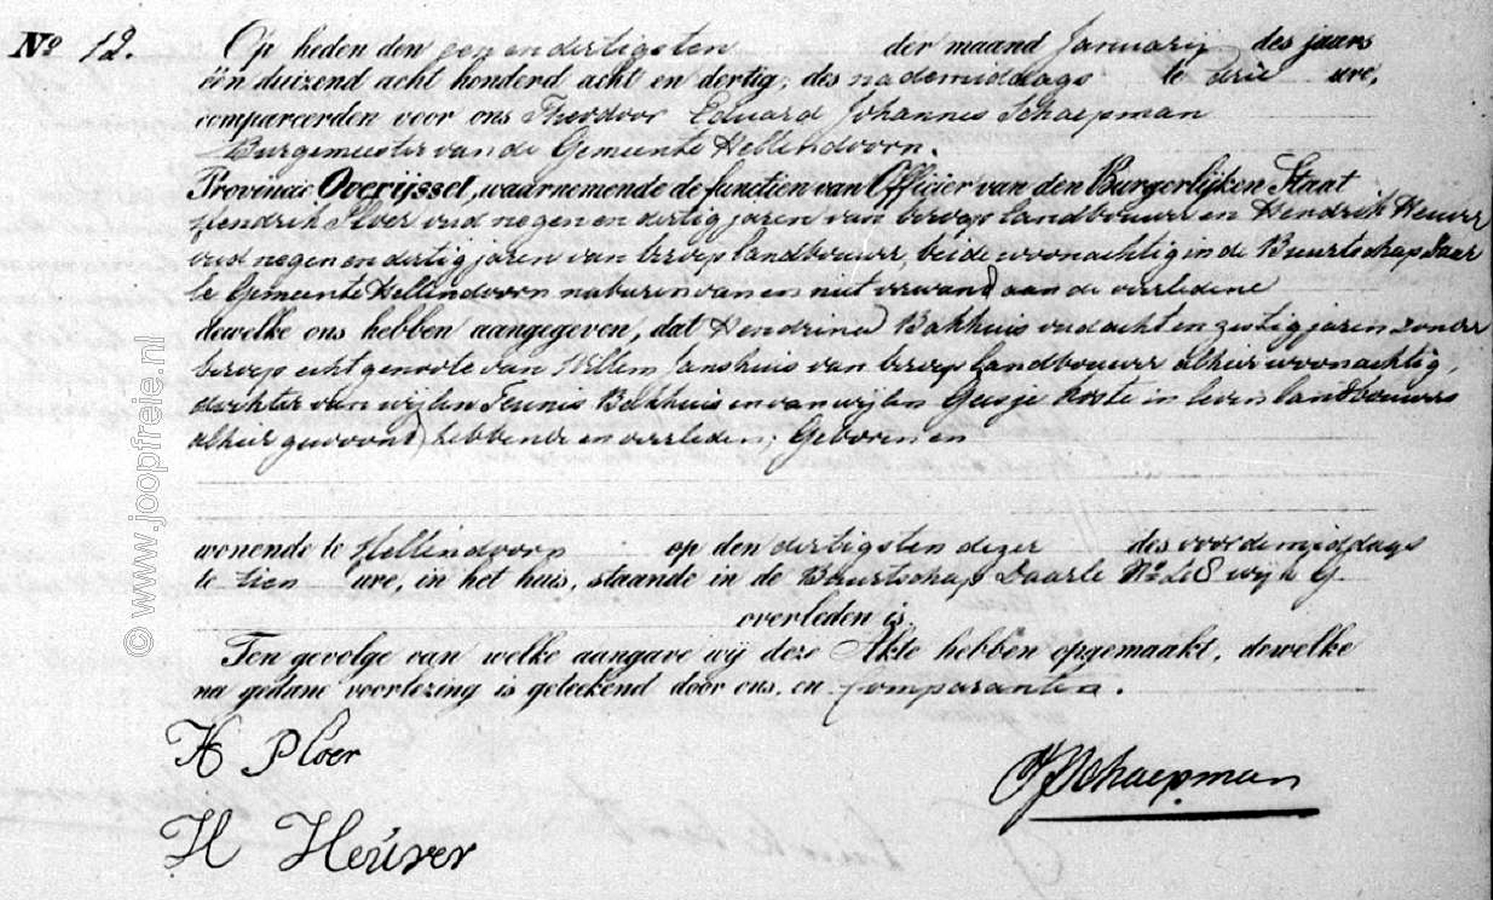 No 12. Op heden den een en dertigsten der maand Januarij des jaars
één duizend acht honderd acht en dertig, des nademiddags te drie ure,
compareerden voor ons Theodoor Eduard Johannes Schaepman
Burgemeester van de Gemeente Hellendoorn.
Provincie Overijssel, waarnemende de functien van Officier van den Burgerlijken Staat
Hendrik Ploer oud negen en dertig jaren van beroep landbouwer en Hendrik Heuver
oud negen en dertig jaren van beroep landbouwer, beide woonachtig in de Buurtschap Daar
le Gemeente Hellendoorn naburen van en niet verwand aan de overledene
dewelke ons hebben aangegeven, dat Hendrina Bakhuis oud acht en zestig jaren zonder
beroep echtgenoote van Willem Janshuis van beroep landbouwer alhier woonachtig,
dochter van wijlen Teunis Bakhuis en van wijlen Geesje in leven landbouwers
alhier gewoond hebbende en overleden; Geboren en
wonende te Hellendoorn op den dertigsten dezer des voordemiddags
te tien ure, in het huis, staande in de Buurtschap Daarle No wijk G.
overleden is.
Ten gevolge van welke aangave wij deze Akte hebben opgemaakt, dewelke
na gedane voorlezing is geteekend door ons, en Comparanten.
H Ploer
Schaepman
H Heúver
© www.joopfreie.nl